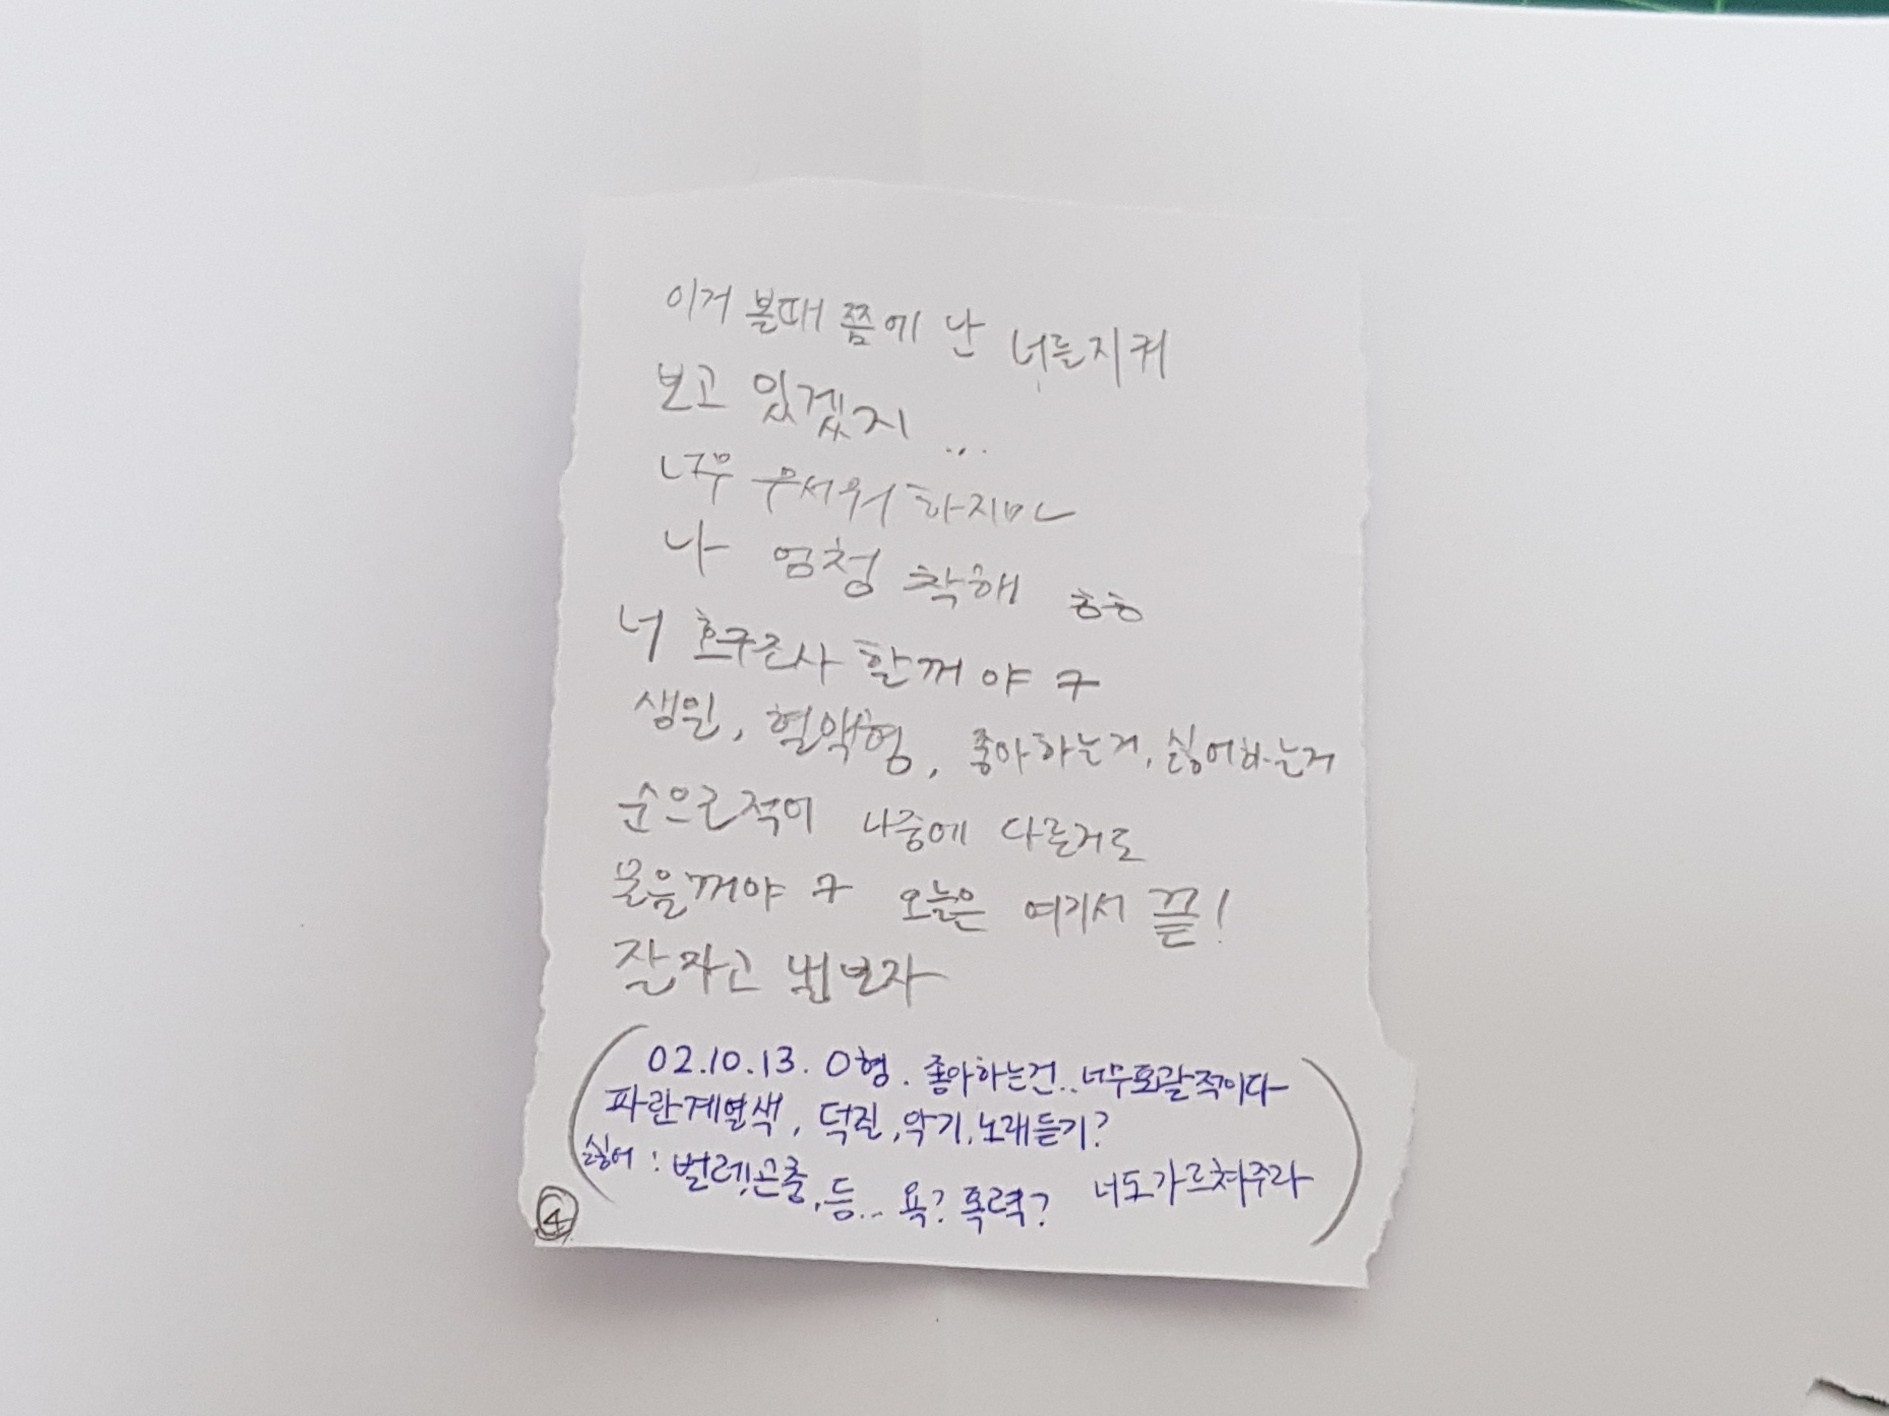 이거 볼때 쯤에 난 너를지켜
보고 있겠지...
너무 무서워 하지마
나 엄청 착해 ㅎㅎ
너 호구조사 할꺼야 ㅋ
생일, 혈액형, 좋아하는거, 싫어하는거
순으로적어 나중에 다른거도
물을꺼야 ㅋ 오늘은 여기서 끝!
잘자고 낼보자
(02.10.13. O형. 좋아하는건.. 너무포괄적이다
파란계열색, 덕질, 악기, 노래듣기?
싫어: 벌레!곤충, 등... 욕? 폭력? 너도가르쳐주라)
④